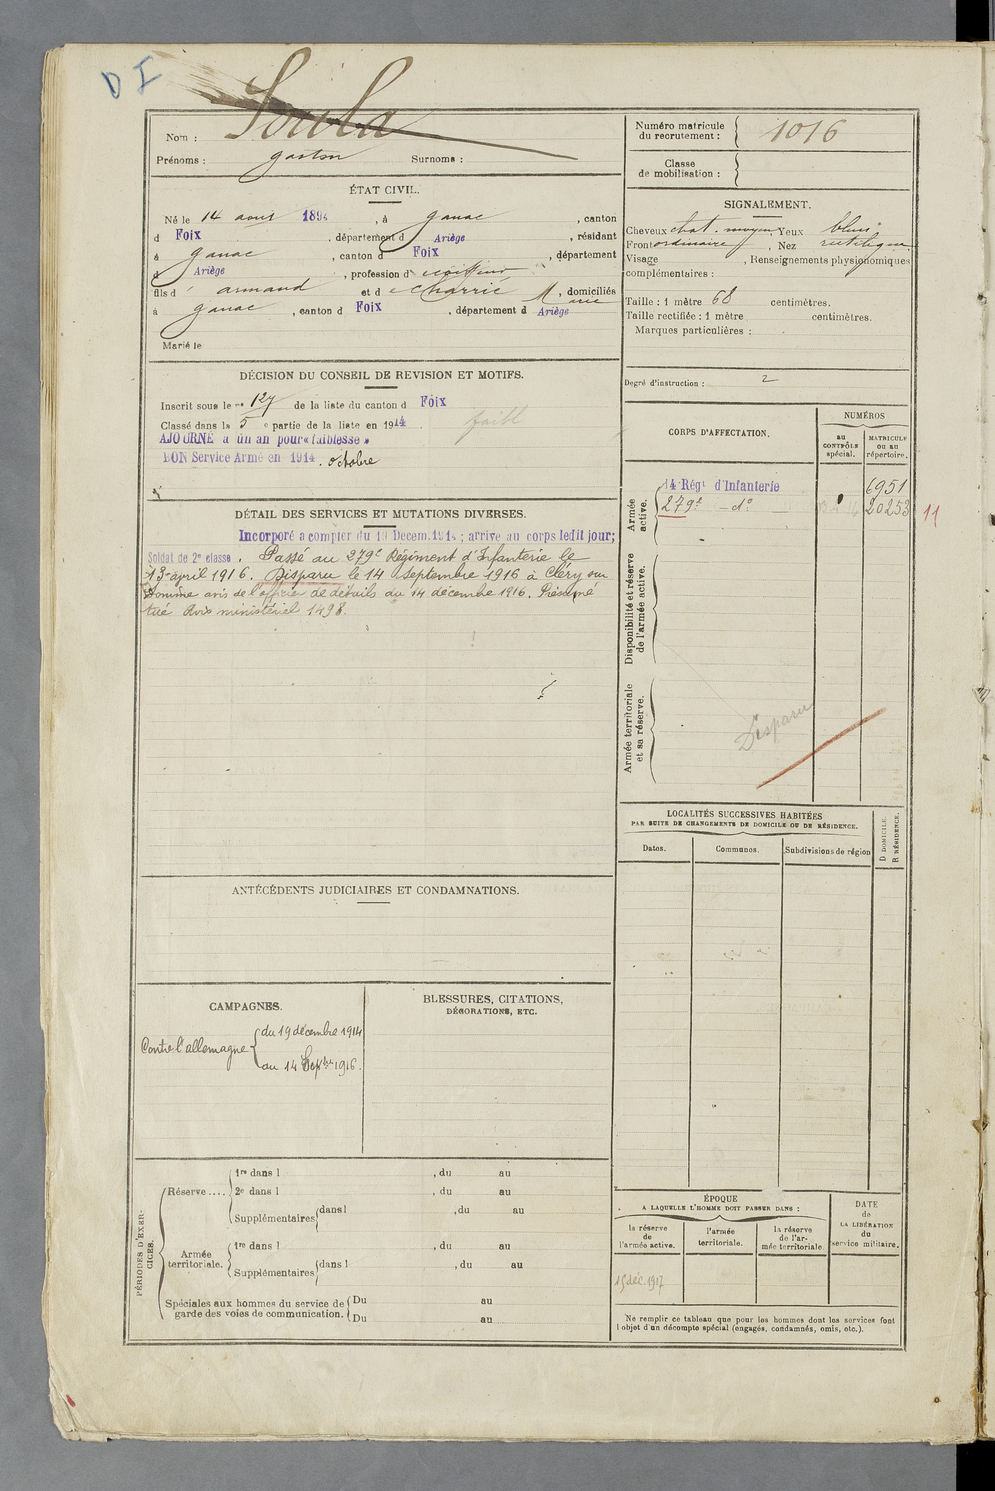 D I
Soula
Nom :
Prénoms : gaston Surnoms :
Numéro matricule
du recrutement : 1016
Classe
de mobilisation :
ÉTAT CIVIL.
Né le 14 aout 1894, à ganac, canton
d Foix, département d Ariège, résidant
à ganac, canton d Foix, département
d Ariège, profession d coiffeur
fils d armand et d e charrié Marie, domiciliés
à ganac, canton d Foix, département d Ariège
Marié le
SIGNALEMENT.
Cheveux chat. moyen Yeux bleus
Front ordinaire, Nez rectiligne
Visage , Renseignements physionomiques
complémentaires :
Taille : 1 mètre 68 centimètres.
Taille rectifiée : 1 mètre centimètres.
Marques particulières :
Degré d'instruction : 2
DÉCISION DU CONSEIL DE REVISION ET MOTIFS.
Inscrit sous le no 127 de la liste du canton d Foix
Classé dans la 5 e partie de la liste en 1914
faibl
AJOURNÉ à un an pour « faiblesse »
BON Service Armé en 1914. octobre
CORPS D'AFFECTATION.
NUMÉROS
au
CONTRÔLE
spécial.
MATRICULE
ou au
répertoire.
Armée
active.
14 Régt d'Infanterie 6951
279e - do 20253
11
Disponibilité et réserve
de l'armée active.
Armée territoriale
et sa réserve.
Disparu
DÉTAIL DES SERVICES ET MUTATIONS DIVERSES.
Incorporé à compter du 19 Décem. 1914 ; arrive au corps ledit jour;
Soldat de 2e classe. Passé au 279e Régiment d'Infanterie le
13 april 1916. Disparu le 14 Septembre 1916 à Cléry sur
Somme avis de l'officier de détails du 14 décembre 1916. Présumé
tué Avis ministériel 1498.
LOCALITÉS SUCCESSIVES HABITÉES
PAR SUITE DE CHANGEMENTS DE DOMICILE OU DE RÉSIDENCE.
Dates.
Communes.
Subdivisions de région
D DOMICILE.
R RÉSIDENCE.
ANTÉCÉDENTS JUDICIAIRES ET CONDAMNATIONS.
CAMPAGNES.
Contre l'allemagne
du 19 décembre 1914
au 14 Septbre 1916.
BLESSURES, CITATIONS,
DÉCORATIONS, ETC.
PÉRIODES D'EXER-
CICES.
Réserve ....
1re dans l , du au
2e dans l , du au
Supplémentaires dans l , du au
Armée
territoriale.
1re dans l , du au
Supplémentaires dans l , du au
Spéciales aux hommes du service de
garde des voies de communication.
Du au
Du au
ÉPOQUE
A LAQUELLE L'HOMME DOIT PASSER DANS :
la réserve
de
l'armée active.
l'armée
territoriale.
la réserve
de l'ar-
mée territoriale.
DATE
de
LA LIBÉRATION
du
service militaire.
15 déc 1917
Ne remplir ce tableau que pour les hommes dont les services font
l'objet d'un décompte spécial (engagés, condamnés, omis, etc.).